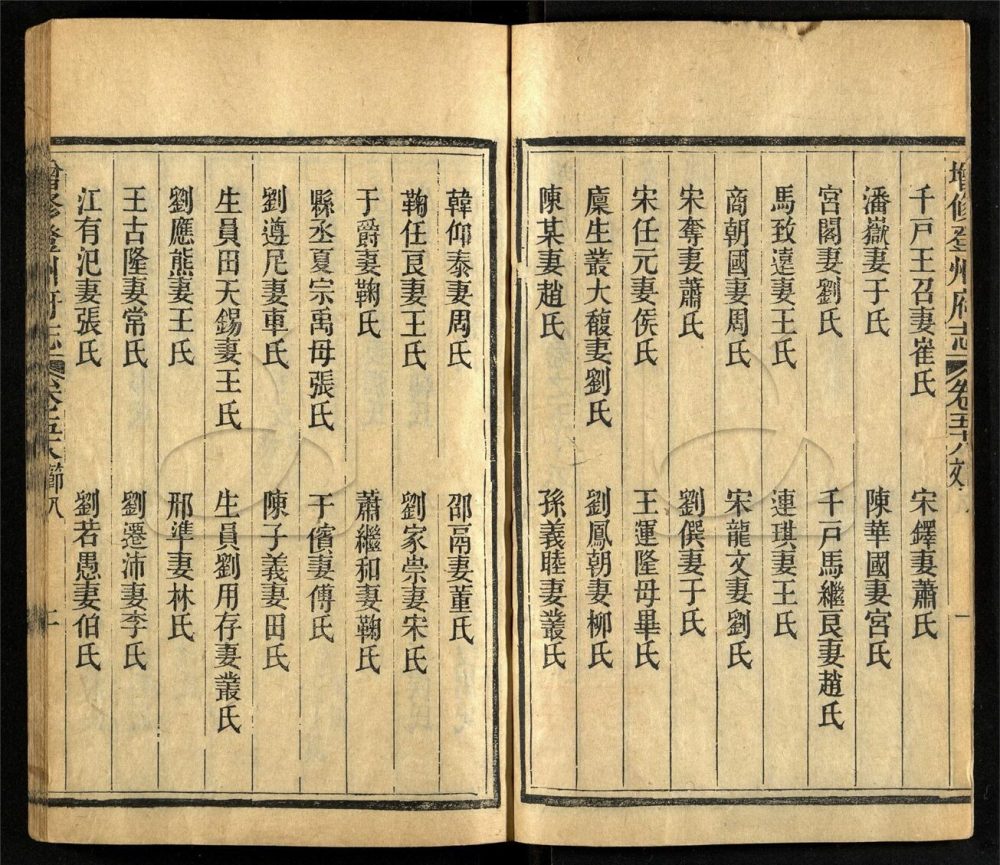 增修登州府志 卷五六
千戸王召妻崔氏 宋鐸妻蕭氏
潘嶽妻于氏 陳華國妻宮氏
宮閣妻劉氏 千戸馬繼良妻趙氏
馬致遠妻王氏 連琪妻王氏
商朝國妻周氏 宋龍文妻劉氏
宋奪妻蕭氏 劉僎妻于氏
宋任元妻侯氏 王運隆母畢氏
廩生叢大馥妻劉氏 劉鳳朝妻柳氏
陳某妻趙氏 孫義睦妻叢氏
韓仰泰妻周氏 邵鬲妻董氏
鞠任良妻王氏 劉家崇妻宋氏
于爵妻鞠氏 蕭繼和妻鞠氏
縣丞夏宗禹母張氏 于儐妻傅氏
劉遵尼妻車氏 陳子義妻田氏
生員田天錫妻王氏 生員劉用存妻叢氏
劉應熊妻王氏 邢準妻林氏
王古隆妻常氏 劉遷沛妻李氏
江有汜妻張氏 劉若愚妻伯氏
增修登州府志 卷五六